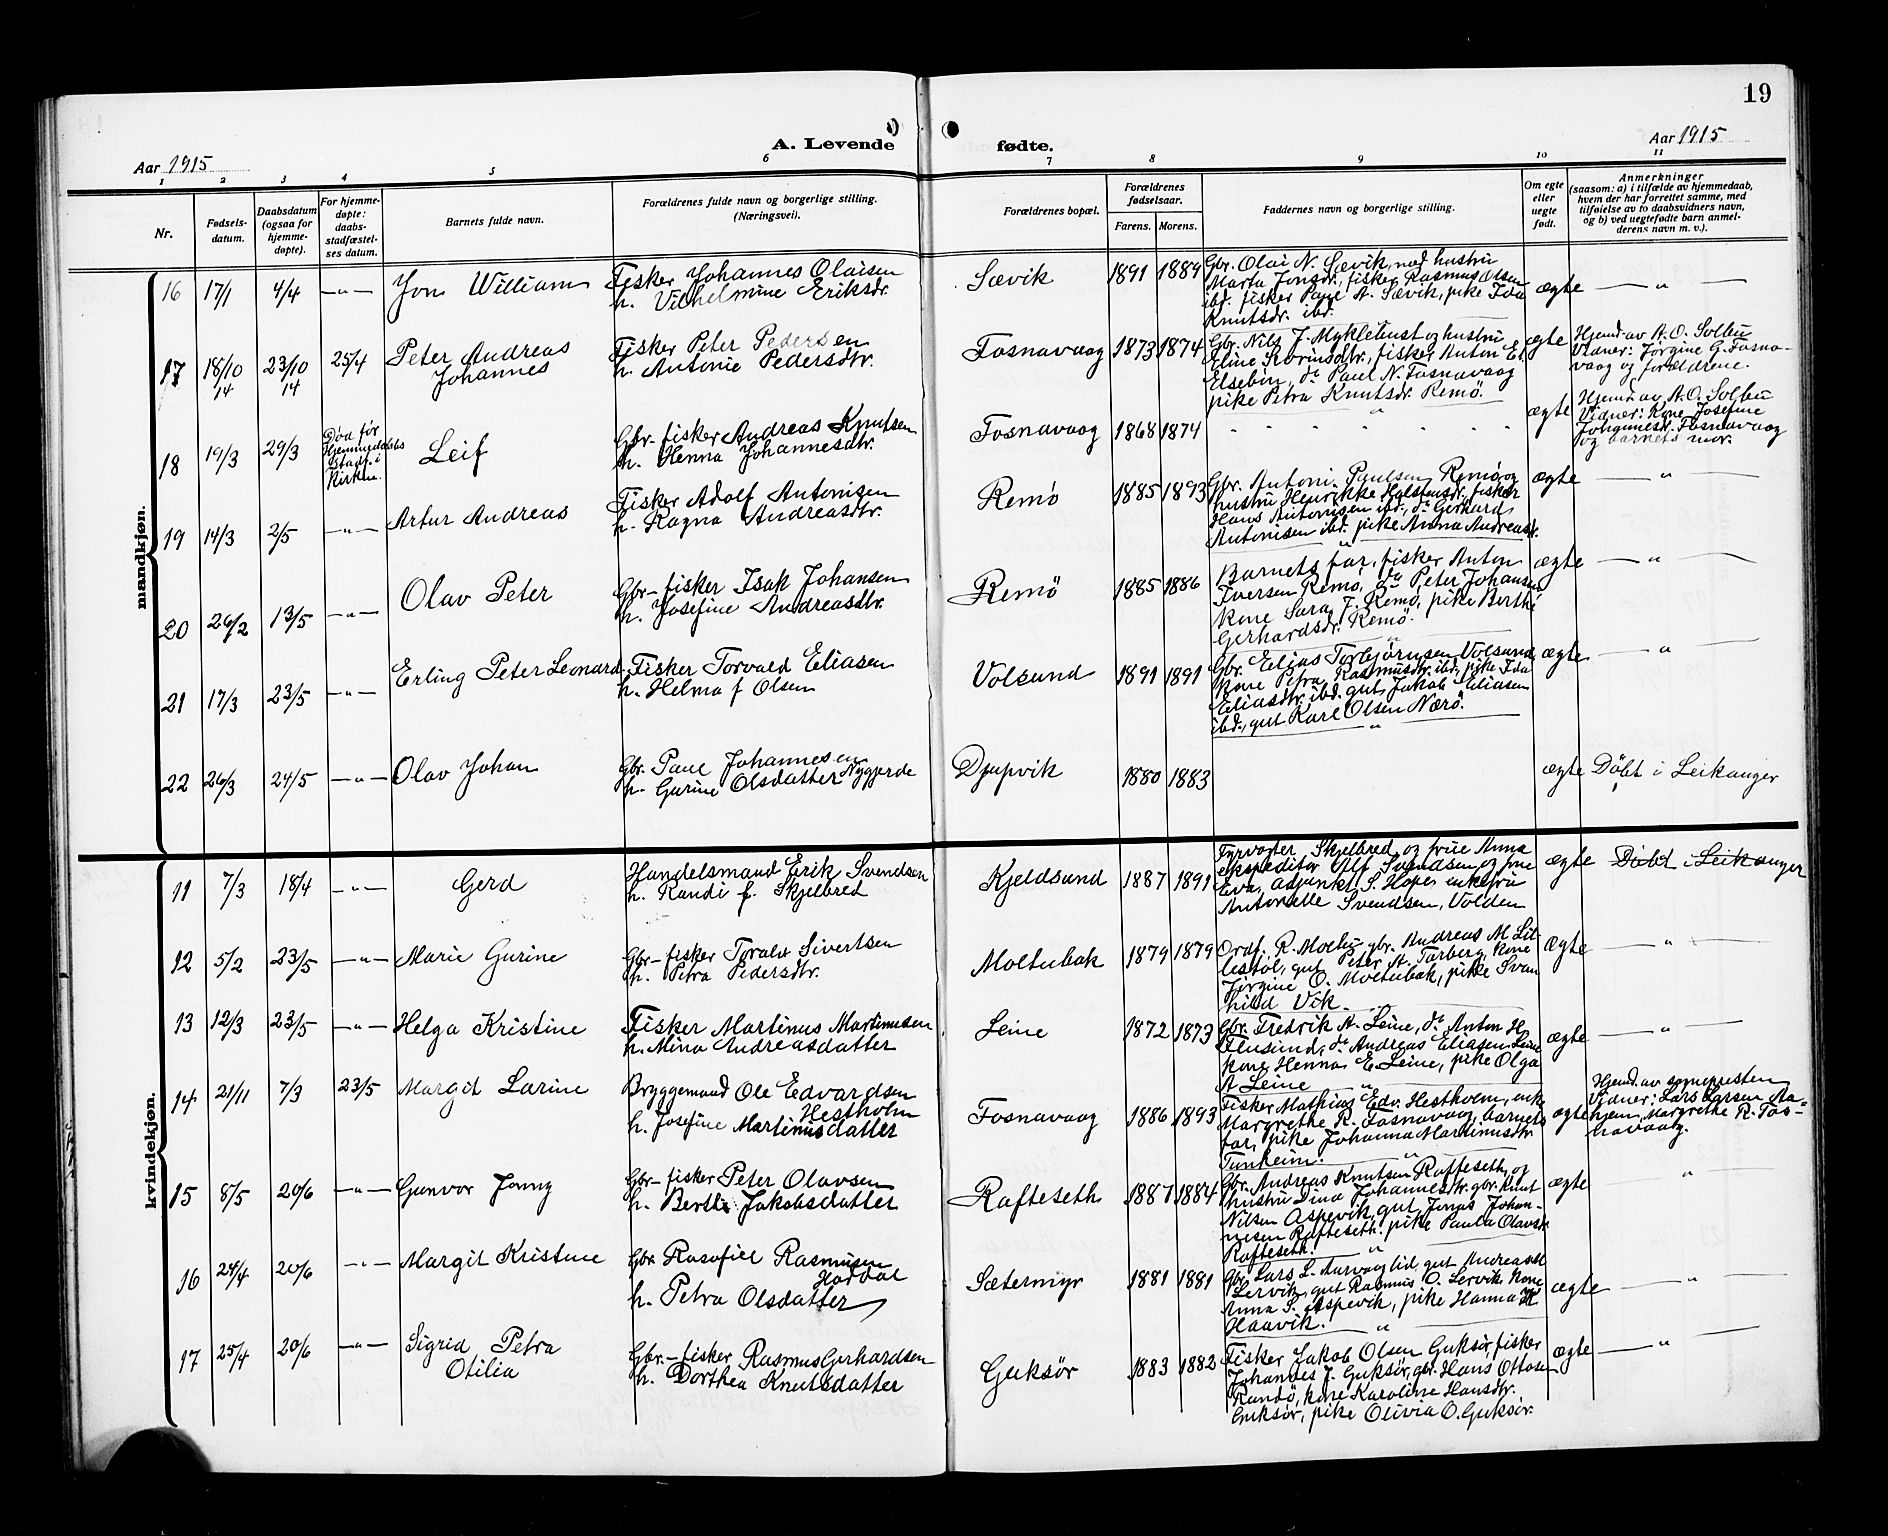 19
A. Levende fødte.
Aar 1915
Aar 1915
1 2 3 4 5 6 7 8 9 10 11
Nr.
Fødsels-
datum.
Daabsdatum
(ogsaa for
hjemme-
døpte).
For hjemme-
døpte:
daabs-
stadfæstel-
ses datum.
Barnets fulde navn.
Forældrenes fulde navn og borgerlige stilling.
(Næringsvei).
Forældrenes bopæl.
Forældrenes
fødselsaar.
Farens. Morens.
Faddernes navn og borgerlige stilling.
Om egte
eller
uegte
født.
Anmerkninger
(saasom: a) i tilfælde av hjemmedaab,
hvem der har forrettet samme, med
tilføielse av to daabsvidners navn,
og b) ved uegtefødte barn anmel-
derens navn m. v.).
mandkjøn.
16 17/1 4/4 —"— Jon William
Fisker Johannes Olaisen
h. Vilhelmine Eriksdr.
Sævik 1891 1889
Gbr. Olai N. Sævik, nød hustru
Marta Jonsdr., fisker Rasmus Olsen
ibd. fisker Paul A. Sævik, pike Ida
Knutsdr. ibd.
ægte —"—
17 18/10 14 23/10 14 25/4 Peter Andreas
Johannes
Fisker Peter Pedersen
h. Antonie Pedersdtr.
Fosnavaag 1873 1874
Gbr. Nils J. Myklebust og hustru
Eline Severinsdtr., fisker Anton El.
Elsebin, do Paul N. Fosnavaag
pike Petra Knutsdr. Remö.
ægte
Hjemd. av A. O. Solbu
Vidner: Jørgine G. Fosna-
vaag og forældrene.
18 19/3 29/3
Død før
Hjemmedaabs
Stadf. i
Kirken.
Leif
Gbr-fisker Andreas Knutsen
h. Henna Johannesdtr.
Fosnavaag 1868 1874
" " " " " " "
ægte
Hjemd. av A. O. Solbu
Vidner: Kone Josefine
Johannesdr. Fosnavaag
og barnets mor.
19 14/3 2/5 —"— Artur Andreas
Fisker Adolf Antonisen
h. Ragna Andreasdtr.
Remø 1885 1893
Gbr. Antoni Paulsen Remø og
hustru Henrikke Halstensdr., fisker
Hans Antonisen ibd., do Gerhard
Antonisen ibd. pike Anna Andreasdr.
ægte —"—
20 26/2 13/5 —"— Olav Peter
Gbr-fisker Isak Johansen
h. Josefine Andreasdtr.
Remö 1885 1886
Barnets far, fisker Anton
Iversen Remö, do Peter Johansen
kone Sara J. Remö, pike Berthe
Gerhardsdr. Remö.
ægte —"—
21 17/3 23/5 —"— Erling Peter Leonard
Fisker Torvald Eliasen
h. Helma f Olsen
Volsund 1891 1891
Gbr. Elias Torbjörnsen Volsund
kone Petra Rasmusdtr. ibd., pike Ida
Eliasdtr. ibd. gut Jakob Eliasen
ibd., gut Karl Olsen Nærö.
ægte —"—
22 26/3 24/5 —"— Olav Johan
Gbr. Paul Johannesen
Nygjerde
h. Gurine Olsdatter
Djupvik 1880 1883
ægte Döbt i Leikanger
kvindekjøn.
11 7/3 18/4 —"— Gerd
Handelsmand Erik Svendsen
h. Randi f. Skjelbred
Kjeldsund 1887 1891
Fyrvogter Skjelbred og frue Anna
ekspeditør Ulf Svendsen og frue
Eva, adjunkt S. Hope, enkefru
Antonette Svendsen, Volden
ægte Döbt i Leikanger
12 5/2 23/5 —"— Marie Gurine
Gbr-fisker Toralv Sivertsen
h. Petra Pedersdtr.
Moltubak 1879 1879
Ordf. R. Moltu, gbr. Andreas M. Lil-
lestöl, gut Peter A. Tarberg, kone
Jörgine O. Moltubak, pike Svan
hild Vik.
ægte —"—
13 12/3 23/5 —"— Helga Kristine
Fisker Martinus Martinusen
h. Mina Andreasdatter
Leine 1872 1873
Gbr. Fredrik A. Leine, do Anton H
Flusund, do Andreas Eliasen Leine
kone Henna E. Leine, pike Olga
A Leine
ægte —"—
14 21/11 7/3 23/5 Margit Larine
Bryggemand Ole Edvardsen
Hestholm
h. Josefine Martinusdatter
Fosnavaag 1886 1893
Fisker Mathias Edv. Hestholm, enke
Margrethe R. Fosnavaag, barnets
far, pike Johanna Martinusdtr.
Tunheim.
ægte
Hjemd. av sognepresten
Vidner: Lars Larsen Aa-
hjem, Margrethe R. Fos-
navaag.
15 8/5 20/6 —"— Gunvor Jenny
Gbr-fisker Peter Olavsen
h. Berthe Jakobsdatter
Rafteseth 1887 1884
Gbr. Andreas Knutsen Rafteseth, og
hustru Dina Johannesdtr. gbr. Knut
Nilsen Aspevik, gut Jonas Johan-
nesen Rafteseth. pike Paula Olavsdr.
Rafteseth.
ægte —"—
16 24/4 20/6 —"— Margit Kristine
Gbr. Rasafiel Rasmusen
Hardal
h. Petra Olsdatter
Sætermyr 1881 1881
Gbr. Lars L. Aurvaaglid, gut Andreas M
Lervik, gut Rasmus O. Lervik kone
Anna S. Aspevik, pike Hanna H
Haavik.
ægte —"—
17 25/4 20/6 —"— Sigrid Petra
Otilia
Gbr.-fisker Rasmus Gerhardsen
h. Dorthea Knutsdatter
Guksør 1883 1882
Fisker Jakob Olsen Guksör, fisker
Johannes J. Guksör, gbr. Hans Ottosen
Randö, kone Karoline Hansdtr.
Guksör, pike Olivia O. Guksör.
ægte —"—